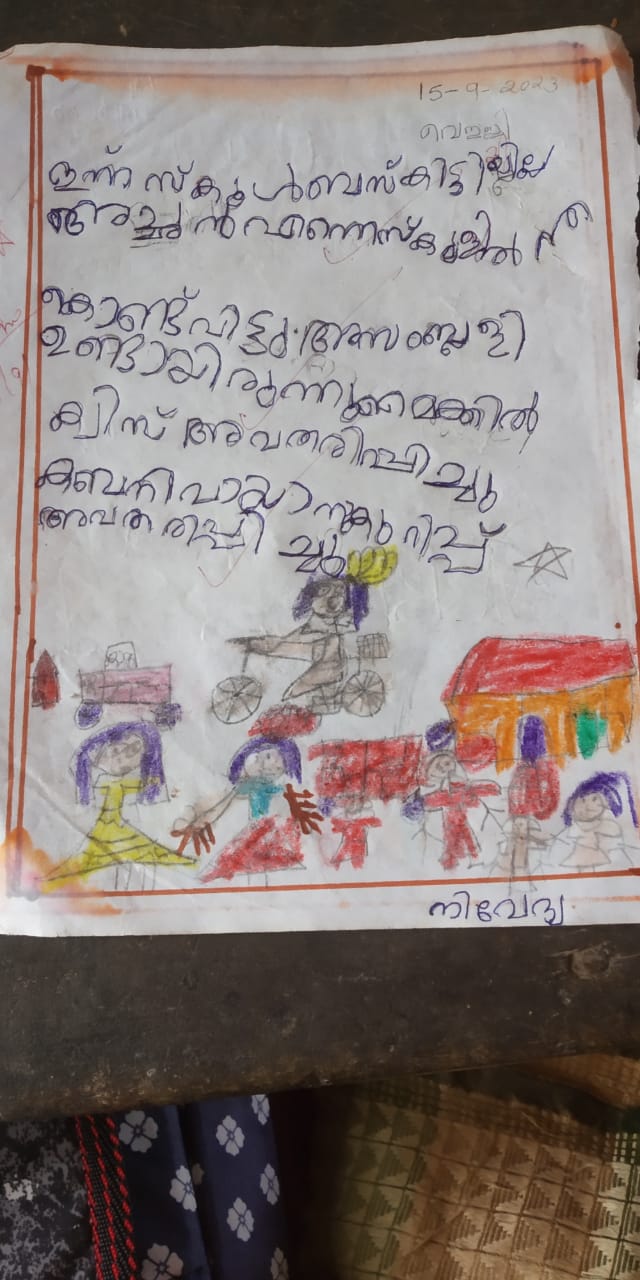 15-9-2023
വെള്ളി
ഇന്ന് സ്കൂൾ ബസ് കിട്ടിയില്ല
അച്ഛൻ എന്നെ സ്കൂളിൽ
കൊണ്ട് വിട്ടു. അസംബ്ലി
ഉണ്ടായിരുന്നു
ക്വിസ് അവതരിപ്പിച്ചു
കബനി വായനാകുറിപ്പ്
അവതരിപ്പിച്ചു
നിവേദ്യ